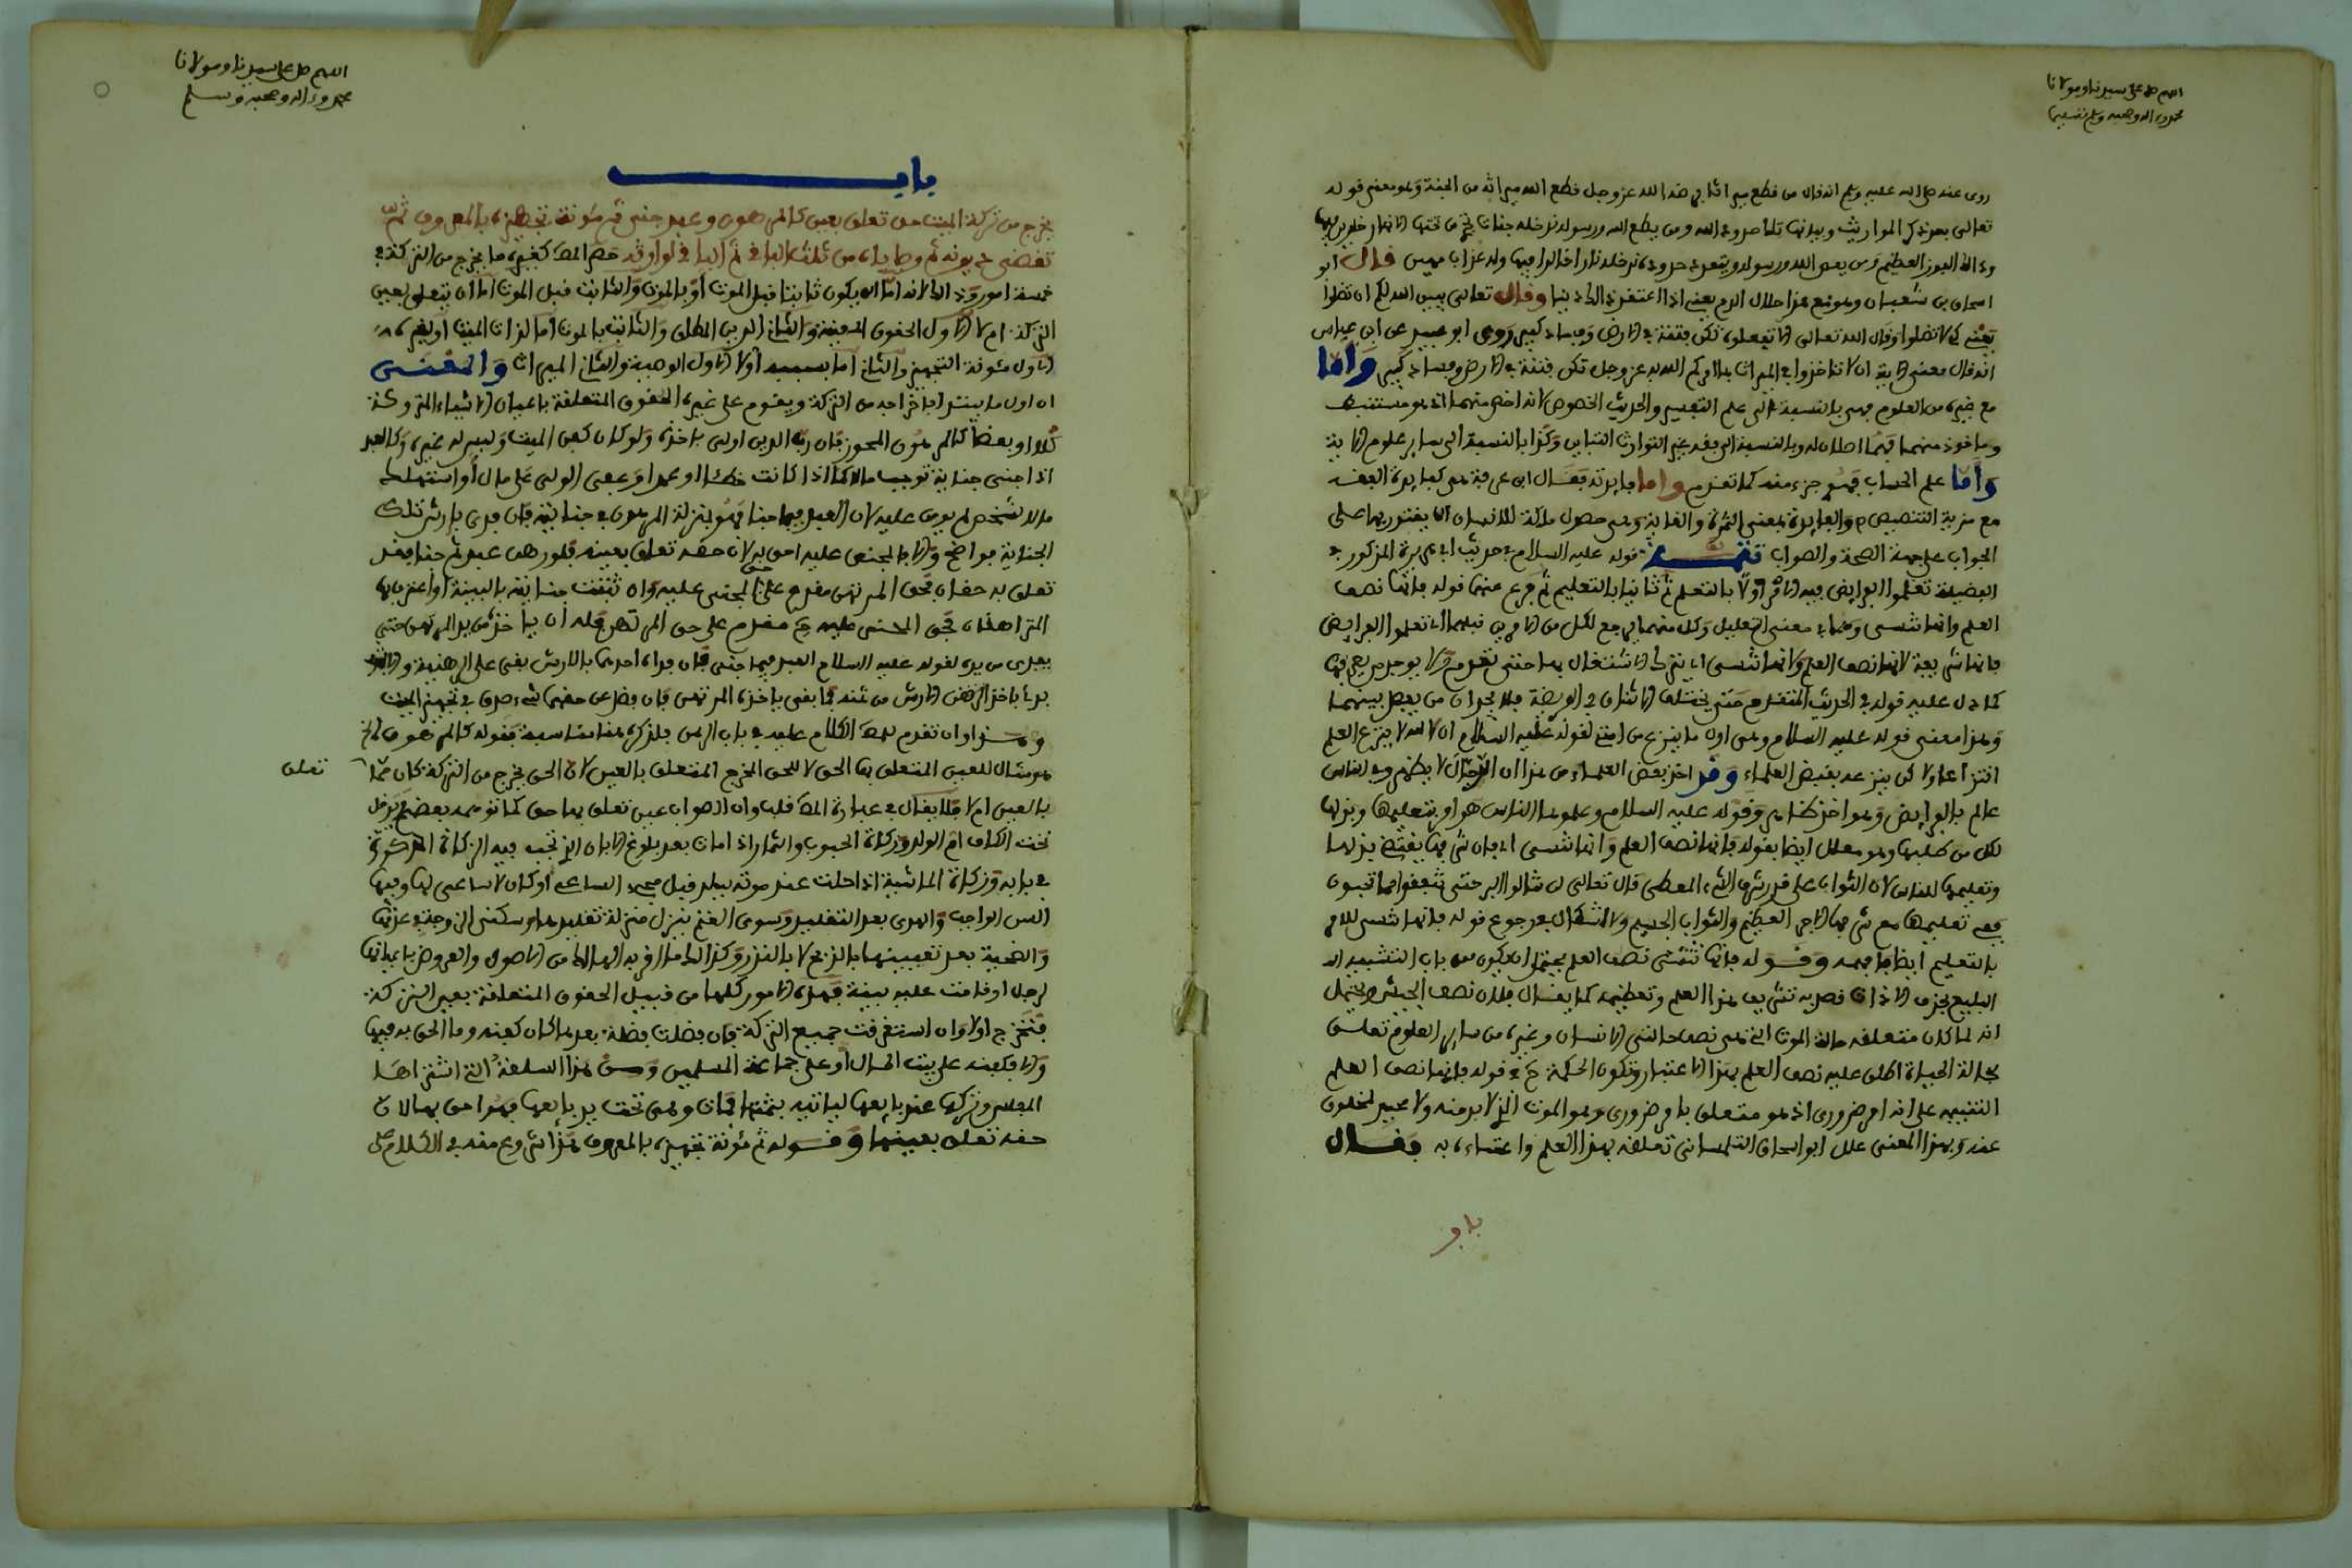 اللهم صل على سيدنا ومولانا
محمد وءاله وصحبه وسلم تسليما
روى عنه صلى الله عليه وسلم انه قال من قطع ميراثا فرضه الله عز وجل قطع الله ميراثه من الجنة وهو معنى قوله
تعالى بعد ذكر المواريث وبيانها تلك حدود الله ومن يطع الله ورسوله ندخله جنات تجري من تحتها الانهار خالدين فيها
وذلك الفوز العظيم ومن يعص الله ورسوله ويتعد حدوده ندخله نارا خالدا فيها وله عذاب مهين قال ابو
اسحاق بن شعبان وموضع هذا خلال الرم يعني اذا اعتقد ذلك دينا وقال تعالى يبين الله لكم ان تضلوا
يعني لئلا تضلوا وقال الله تعالى الا تفعلوه تكن فتنة في الارض وفساد كبير روى ابو عبيد عن ابن عباس
انه قال معنى الاية ان لا تاخذوا في الميراث بما امركم الله به عز وجل تكن فتنة في الارض وفساد كبير وأما
مع غيره من العلوم فهي بالنسبة الى علم التفسير والحديث الخصوص لانه اخص منهما اذ هو مستنبط
وماخوذ منهما فهما اصلان له وبالنسبة الى بقية غير التوارث التباين وكذا بالنسبة الى ساير علوم الاية
وأما علم الحساب فهو جزء منه كما تقدم واما فايدته فقال ابن عرفة هي كفايدة الفقه
مع مزية التنصيص والفايدة بمعنى الثمرة والغاية وهي حصول ملكة للانسان يقتدر بها على
الجواب على جهة الصحة والصواب تتمة قوله عليه السلام في حديث ابي هريرة المذكور في
الفضيلة تعلموا الفرايض فيه الامر اولا بالتعلم ثم ثانيا بالتعليم ثم فرع عنهما قوله فانها نصف
العلم وانها تنسى وهما في معنى التعليل وكل منهما يرجع لكل من الامرين قبلهما اي تعلموا الفرايض
فانها شريعة لانها نصف العلم ولانها تنسى اي يترك الاشتغال بها حتى تعدم ولا يوجد من يعرفها
كما دل عليه قوله في الحديث المتقدم حتى يختلف الاثنان في الفريضة فلا يجدان من يفصل بينهما
وهذا معنى قوله عليه السلام وهي اول ما ينزع من امتي لقوله عليه السلام ان الله لا ينزع العلم
انتزاعا ولاكن ينزعه بقبض العلماء وقد اخذ بعض العلماء من هذا ان الدجال لا يظهر وفي الناس
عالم بالفرايض وهو اخذ ظاهر وقوله عليه السلام وعلموها الناس هو امر بتعليمها وبذلها
لكل من طلبها وهو معلل ايضا بقوله فانها نصف العلم وانها تنسى اي فان شرفها يقتضي بذلها
وتعليمها للناس لان الثواب على قدر شرف الشيء المعطى قال تعالى لن تنالوا البر حتى تنفقوا مما تحبون
ففي تعليمها مع شرفها الاجر العظيم والثواب الجسيم ولا اشكال يعد رجوع قوله فانها تنسى للامر
بالتعليم ايضا فافهمه وقوله فانها نصف العلم يحتمل ان يكون من باب التشبيه
البليغ بحذف الاداة قصد به تشريف هذا العلم وتعظيمه كما يقال فلان نصف الجيش ويحتمل
انه لما كان متعلقه حالة الموت التي هي نصف حالتي الانسان وغيره من ساير العلوم تعلق
بحالة الحياة اطلق عليه نصف العلم بهذا الاعتبار وتكون الحكمة في قوله فانها نصف العلم
التنبيه على انه امر ضروري اذ هو متعلق بامر ضروري وهو الموت الذي لا بد منه ولا محيد لمخلوق
عنه وبهذا المعنى علل ابو اسحاق التلمساني تعلقه بهذا العلم واعتناءه به فقال
باب
اللهم صل على سيدنا ومولانا
محمد وءاله وصحبه وسلم
باب
يخرج من تركة الميت حق تعلق بعين كالمرهون وعبد جنى ثم مئونة تجهيزه بالمعروف ثم
تقضى ديونه ثم وصاياه من ثلث الباقي ثم الباقي لوارثه حصر المص كغيره ما يخرج من التركة في
خمسة امور وذلك لانه اما ان يكون ثابتا قبل الموت او بالموت والثابت قبل الموت اما ان يتعلق بعين
التركة ام لا الاول الحقوق المعينة والثاني الدين المطلق والثابت بالموت اما لذات الميت او لغيره
الاول مئونة التجهيز والثاني اما بسببه او لا الاول الوصية والثاني الميراث والمعنى
ان اول ما يبتدا باخراجه من التركة ويقدم على غيره الحقوق المتعلقة باعيان الاشياء المتروكة
كلا او بعضا كالمرهون المحوز فان رب الدين اولى باخذه ولو كان كفن الميت وليس له غيره وكالعبد
اذا جنى جناية توجب مالا كما اذا كانت خطئا او عمدا وعفى الولي على مال او استهلك
مالا لشخص لم يومن عليه لان العبد فيما جنا فهو بمنزلة المرهون في جنايته فان فدي بارش تلك
الجناية فواضح والا فالمجنى عليه احق به لان حقه تعلق بعينه فلو رهن عبد ثم جنا فقد
تعلق به حقان فحق المرتهن مقدم على حق المجنى عليه وان ثبتت جنايته بالبينة او اعترف بها
المتراهنان فحق المجنى عليه ح مقدم على حق المرتهن وله ان ياخذه من يد المرتهن حتى
يفدى من يده لقوله عليه السلام العبد فيما جنى فان فداه احدهما بالارش بقي على الرهنية والا
بدئ باخذ الارش من ثمنه فما بقي ياخذه المرتهن فان فضل عن حقهما شيء صرف في تجهيز الميت
وهذا وان تقدم للمص الكلام عليه في باب الرهن فلذكره هنا مناسبة بقوله كالمرهون الخ
هو مثال للعين المتعلق بها الحق لا للحق المخرج المتعلق بالعين لان الحق يخرج من التركة كان مما
تعلق
بالعين ام لا فلا يقال في عبارة المص قلب وان الصواب عين تعلق بها حق كما توهمه بعضهم ويدخل
تحت الكاف ام الولد وزكاة الحبوب والثمار اذا مات بعد بلوغ الابان الذي تجب فيه الزكاة المذكورة
في بابه وزكاة الماشية اذا حلت عند موته ببلد قبل مجيء الساعي او كان لا ساعي لها وفيها
السن الواجب والهدي بعد التقليد وسوق الغنم ينزل منزلة تقليدها وسكنى الزوجة في عدتها
والضحية بعد تعيينها بالذبح لا بالنذر وكذلك ما اقر به الهالك من الاصول والعروض باعيانها
لرجل او قامت عليه بينة فهذه الامور كلها من قبيل الحقوق المتعلقة بعين التركة
فتخرج اولا وان استغرقت جميع التركة فان فضلت فضلة بعدها كان كفنه وما الحق به فيها
والا فكفنه على بيت المال او على جماعة المسلمين ومن هذا السلعة التي اشتراها
المفلس وتركها عند بايعها لياتيه بثمنها فمات وهي تحت يد بايعها فهو احق بها لان
حقه تعلق بعينها وقوله ثم مئونة تجهيزه بالمعروف هذا شروع منه في الكلام على